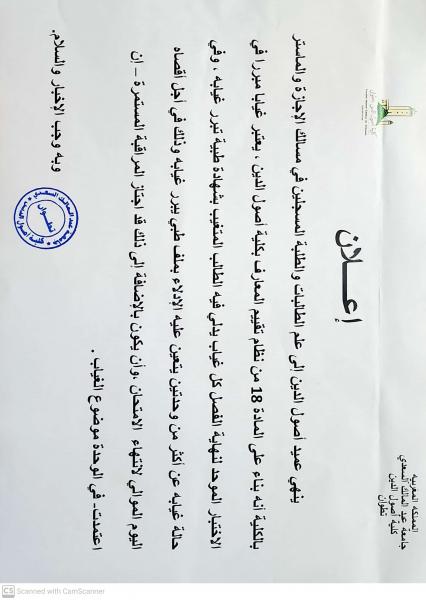 المملكة المغربية
جامعة عبد المالك السعدي
كلية أصول الدين
تطوان
إعـــلان
ينهي عميد أصول الدين إلى علم الطالبات والطلبة المسجلين في مسالك الإجازة والماستر
بالكلية أنه بناء على المادة 18 من نظام تقييم المعارف بكلية أصول الدين ، يعتبر غيابا مبررا في
الاختبار الموحد لنهاية الفصل كل غياب يدلي فيه الطالب المتغيب بشهادة طبية تبرر غيابه ، وفي
حالة غيابه عن أكثر من وحدتين يتعين عليه الإدلاء بملف طبي يبرر غيابه وذلك في أجل أقصاه
اليوم الموالي لانتهاء الامتحان .وأن يكون بالإضافة إلى ذلك قد اجتاز المراقبة المستمرة – إن
اعتمدت- في الوحدة موضوع الغياب .
وبه وجب الإخبار والسلام.
جامعة عبد المالك السعدي
تطوان
كلية أصول الدين
CS Scanned with CamScanner